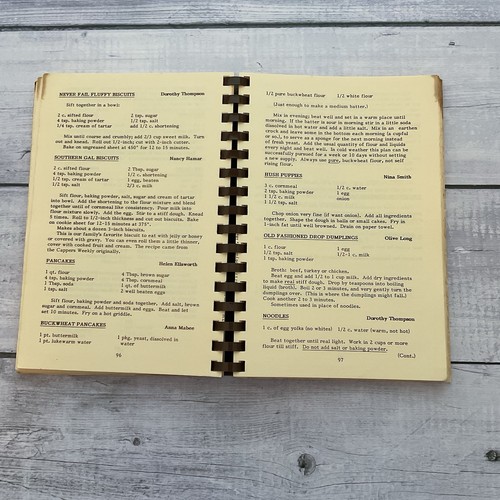 NEVER FAIL FLUFFY BISCUITS Dorothy Thompson
Sift together in a bowl:
2 c. sifted flour 2 tsp. sugar
4 tsp. baking powder 1/2 tsp. salt
1/4 tsp. cream of tartar add 1/2 c. shortening
Mix until coarse and crumbly; add 2/3 cup sweet milk. Turn
out and knead. Roll out 1/2-inch; cut with 2-inch cutter.
Bake on ungreased sheet at 450° for 12 to 15 minutes.
SOUTHERN GAL BISCUITS Nancy Hamar
2 c. sifted flour 2 Tbsp. sugar
4 tsp. baking powder 1/2 c. shortening
1/2 tsp. cream of tartar 1 egg, beaten
1/2 tsp. salt 2/3 c. milk
Sift flour, baking powder, salt, sugar and cream of tartar
into bowl. Add the shortening to the flour mixture and blend
together until of cornmeal like consistency. Pour milk into
flour mixture slowly. Add the egg. Stir to a stiff dough. Knead
5 times. Roll to 1/2-inch thickness and cut out biscuits. Bake
on cookie sheet for 12-15 minutes at 375°.
Makes about a dozen 3-inch biscuits.
This is our family's favorite biscuit to eat with jelly or honey
or covered with gravy. You can even roll them a little thinner,
cover with cooked fruit and cream. The recipe came from
the Cappers Weekly originally.
PANCAKES Helen Ellsworth
1 qt. flour 4 Tbsp. brown sugar
4 tsp. baking powder 4 Tbsp. cornmeal
1 Tbsp. soda 1 qt. of buttermilk
1 tsp. salt 2 well beaten eggs
Sift flour, baking powder and soda together. Add salt, brown
sugar and cornmeal. Add buttermilk and eggs. Beat and let
set 10 minutes. Fry on a hot griddle.
BUCKWHEAT PANCAKES Anna Mabee
1 pt. buttermilk 1 pkg. yeast, dissolved in
1 pt. lukewarm water water
96
1/2 pure buckwheat flour 1/2 white flour
(Just enough to make a medium batter.)
Mix in evening; beat well and set in a warm place until
morning. If the batter is sour in morning stir in a little soda
dissolved in hot water and add a little salt. Mix in an earthen
crock and leave some in the bottom each morning (a cupful
or so,) to serve as a sponge for the next morning instead
of fresh yeast. Add the usual quantity of flour and liquids
every night and beat well. In cold weather this plan can be
successfully pursued for a week or 10 days without setting
a new supply. Always use pure, buckwheat flour, not self
rising flour.
HUSH PUPPIES Nina Smith
3 c. cornmeal 1/2 c. water
2 tsp. baking powder 1 egg
1 c. milk onion
1 1/2 tsp. salt
Chop onion very fine (if want onion). Add all ingredients
together. Shape the dough in balls or small cakes. Fry in
1-inch fat until well browned. Drain on paper towel.
OLD FASHIONED DROP DUMPLINGS Olive Long
1 c. flour 1 egg
1/2 tsp. salt 1/2-1 c. milk
1 tsp. baking powder
Broth: beef, turkey or chicken.
Beat egg and add 1/2 to 1 cup milk. Add dry ingredients
to make real stiff dough. Drop by teaspoons into boiling
liquid (broth). Boil 2 or 3 minutes, and very gently turn the
dumplings over. (This is where the dumplings might fail.)
Cook another 2 to 3 minutes.
Sometimes used in place of noodles.
NOODLES Dorothy Thompson
1 c. of egg yolks (no whites) 1/2 c. water (warm, not hot)
Beat together until real light. Work in 2 cups or more
flour till stiff. Do not add salt or baking powder.
(Cont.)
97